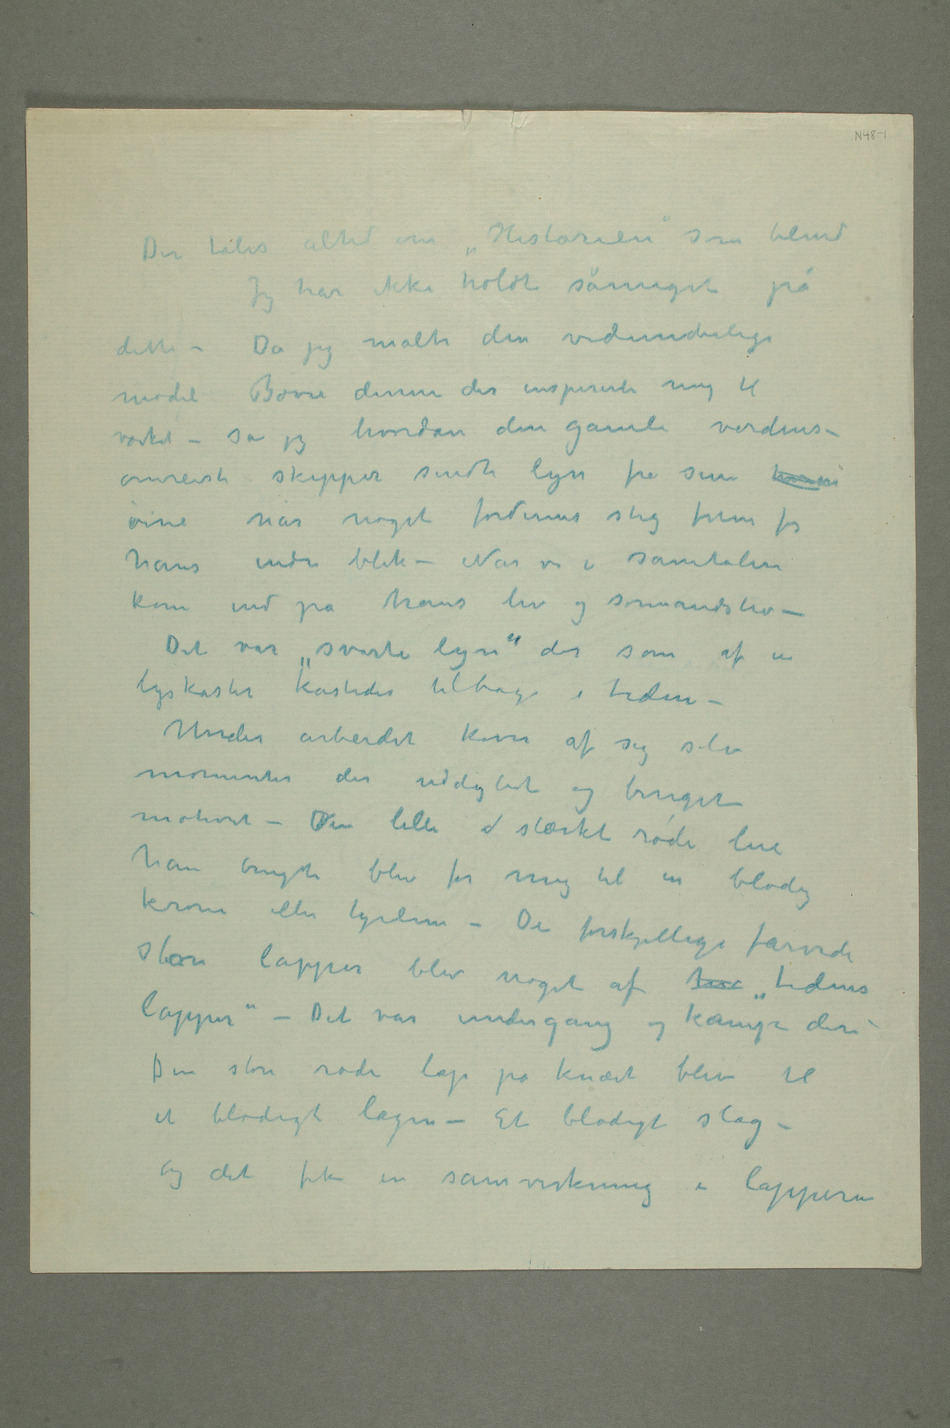 N48-1
Der tales altid om „Historien“ som blind
Jeg har ikke holdt såmeget på
dette – Da jeg malte den vidunderlige
model Børre denne der inspirerte mig til
værket – så jeg hvordan den gamle verdens-
omreiste skipper sendte lyn fra sine
øine når noget fordums steg frem for
hans indre blik – Når vi i samtalen
kom ind på hans liv og sømandsliv –
Det var „svarte lyn“ der som af en
lyskaster kastedes tilbage i tiden –
Under arbeidet kom af sig selv
momenter der uddybet og beriget
motivet – Den lille stærkt røde lue
han brugte blev for mig til en blodig
krone eller hjelm – De forskjellige farvede
store lapper blev noget af „tidens
lapper“ – Det var undergang og kamp deri –
Den store røde lap på knæet blev til
et blodigt lagen – Et blodigt slag –
og det fik en samvirkning i lapperne